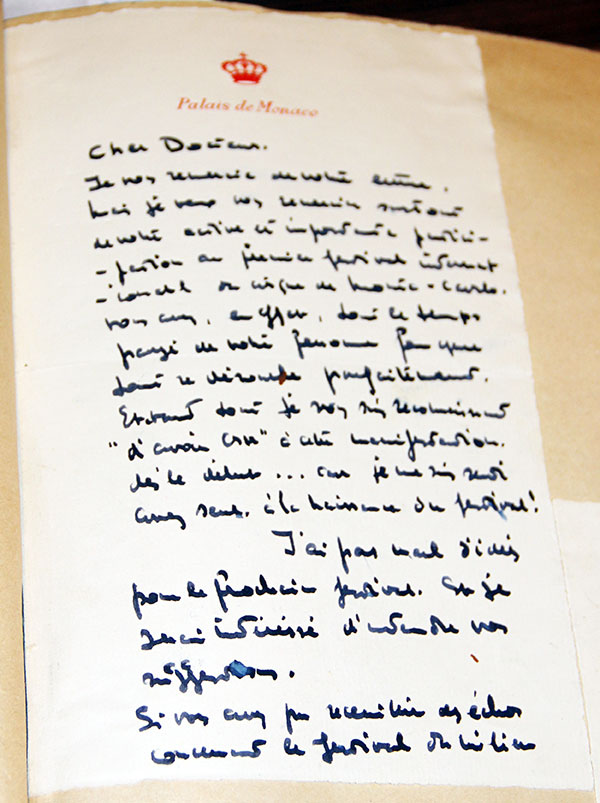 Palais de Monaco
Cher Docteur.
Je vous remercie de votre lettre.
Mais je veux vous remercier surtout
de votre active et importante partici-
-pation au premier festival internat
-ional du cirque de Monte-Carlo.
vous avez, en effet, tout le temps
payé de votre personne pour que
tout se déroule parfaitement.
Et avant tout je vous suis reconnaissant
"d'avoir cru" à cette manifestation.
dès le début ... car je me suis senti
assez seul. à la naissance du festival!
J'ai pas mal d'idées
pour le prochain festival. Et je
serai intéressé d'entendre vos
suggestions.
Si vous avez pu recueillir des échos
concernant le festival du milieu